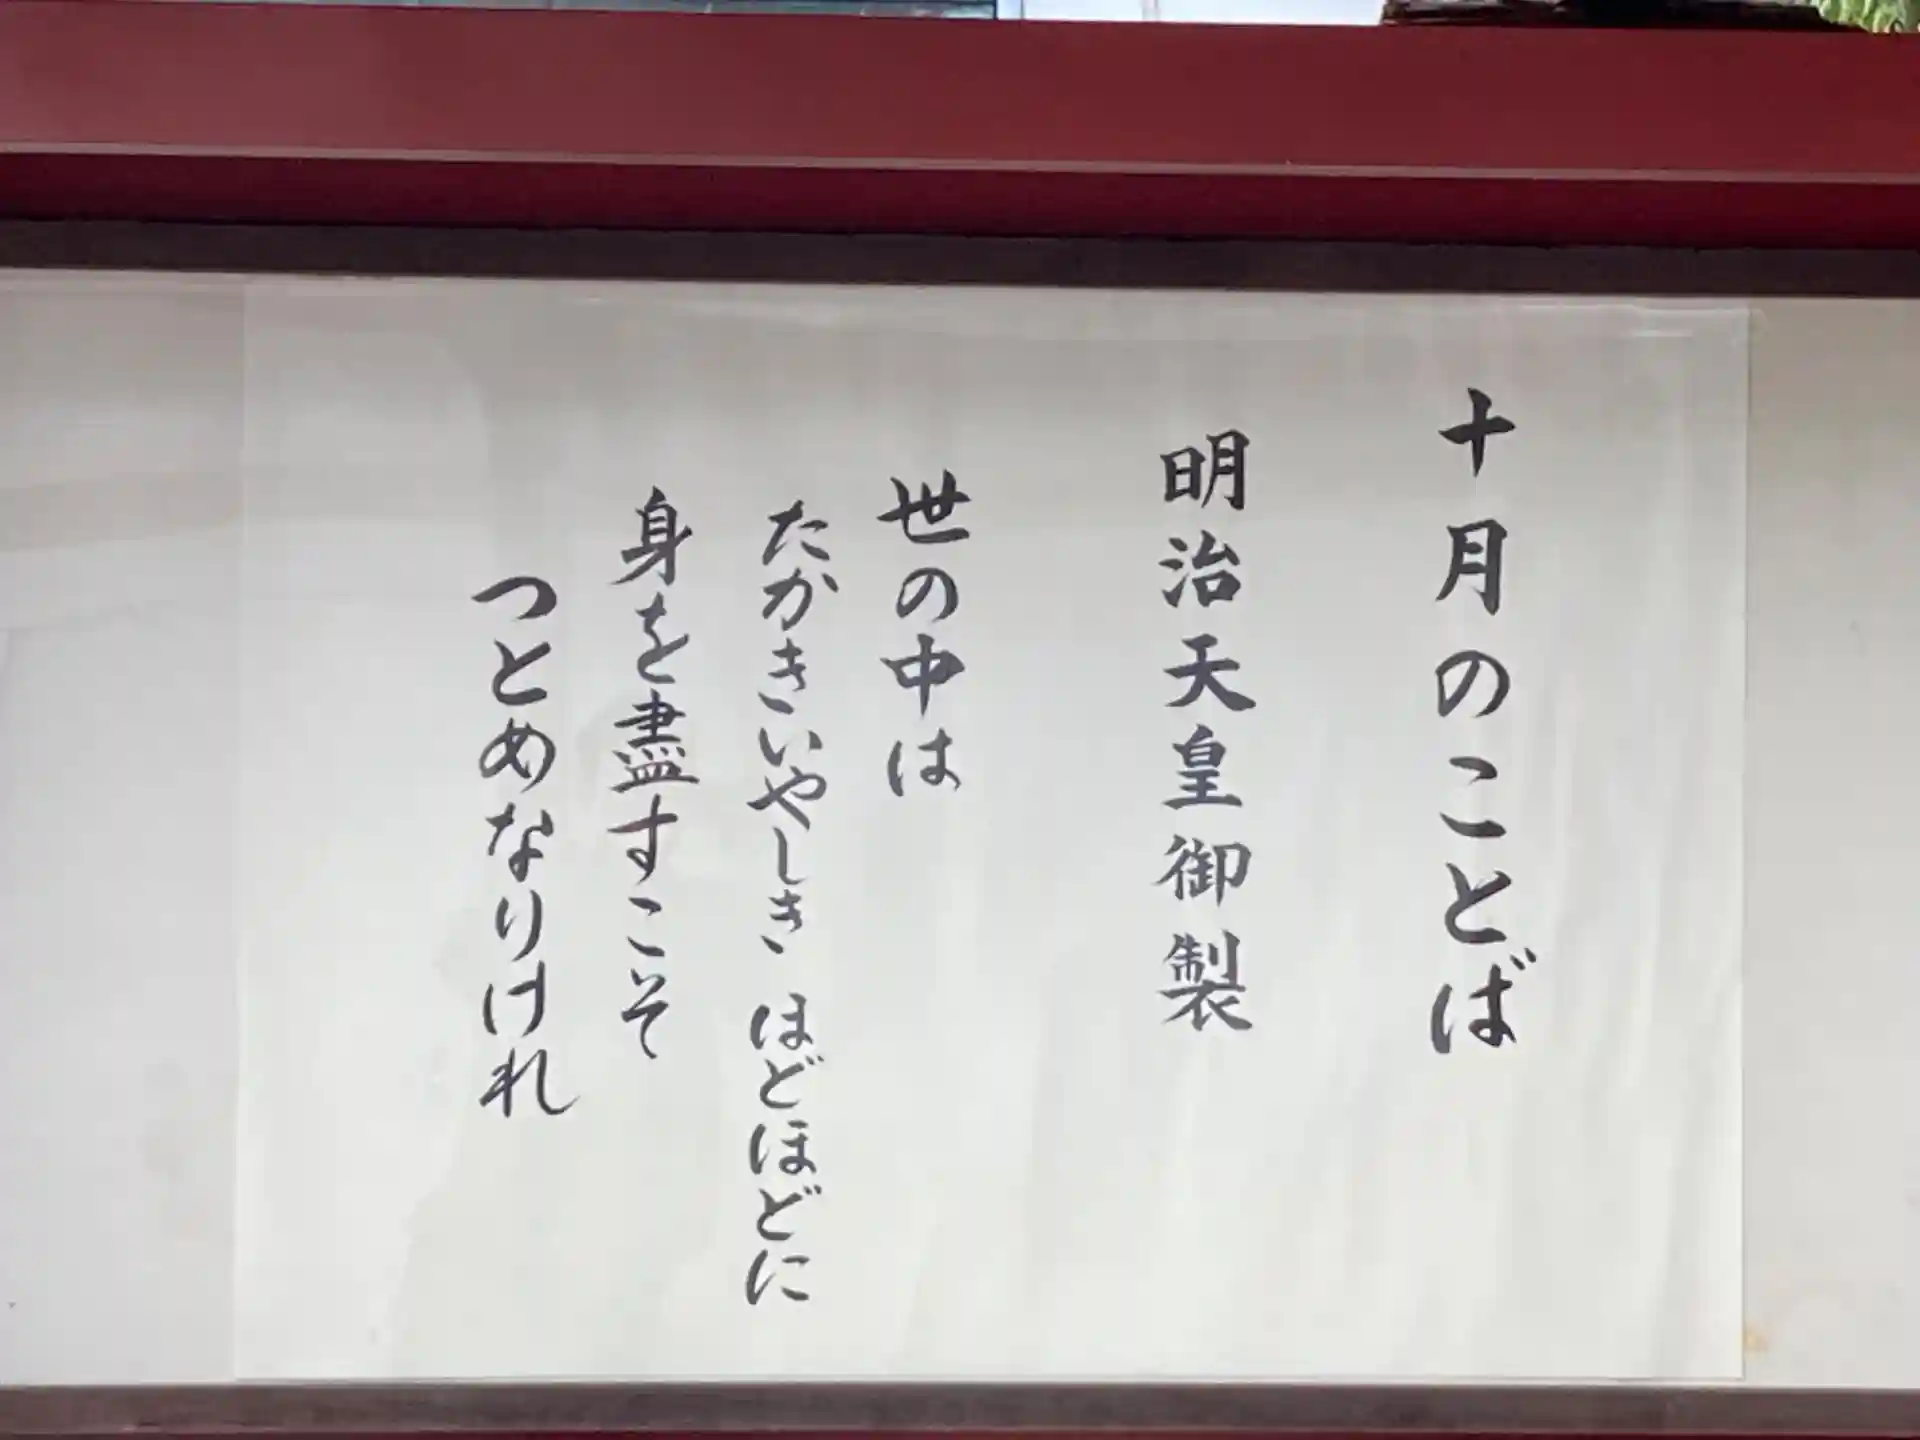 十月のことば
明治天皇御製
世の中は
たかきいやしき ほどほどに
身を盡すこそ
つとめなりけれ